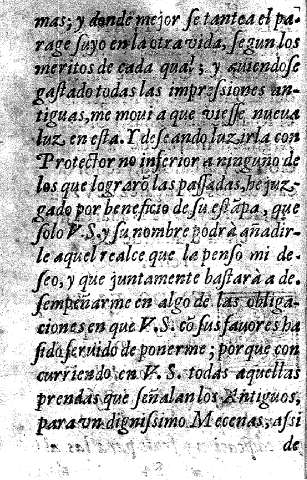 mas; y donde mejor se tantea el pa-
rage suyo en la otra vida, segun los
meritos de cada qual; y auiendose
gastado todas las impressiones an-
tiguas, me moui a que viesse nueua
luz en esta. Y deseando luzirla con
Protector no inferior a ninguno de
los que lograrõ las passadas, he juz
gado por beneficio de su estãpa, que
solo V. S. y su nombre podrà añadir-
le aquel realce que la pensò mi de-
seo, y que juntamente bastarà a de-
sempeñarme en algo de las obliga-
ciones en que V. S. cõ sus fauores ha
sido seruido de ponerme; porque con
curriendo en V. S. todas aquellas
prendas que señalan los Antiguos,
para vn dignissimo Mecenas, assi
de